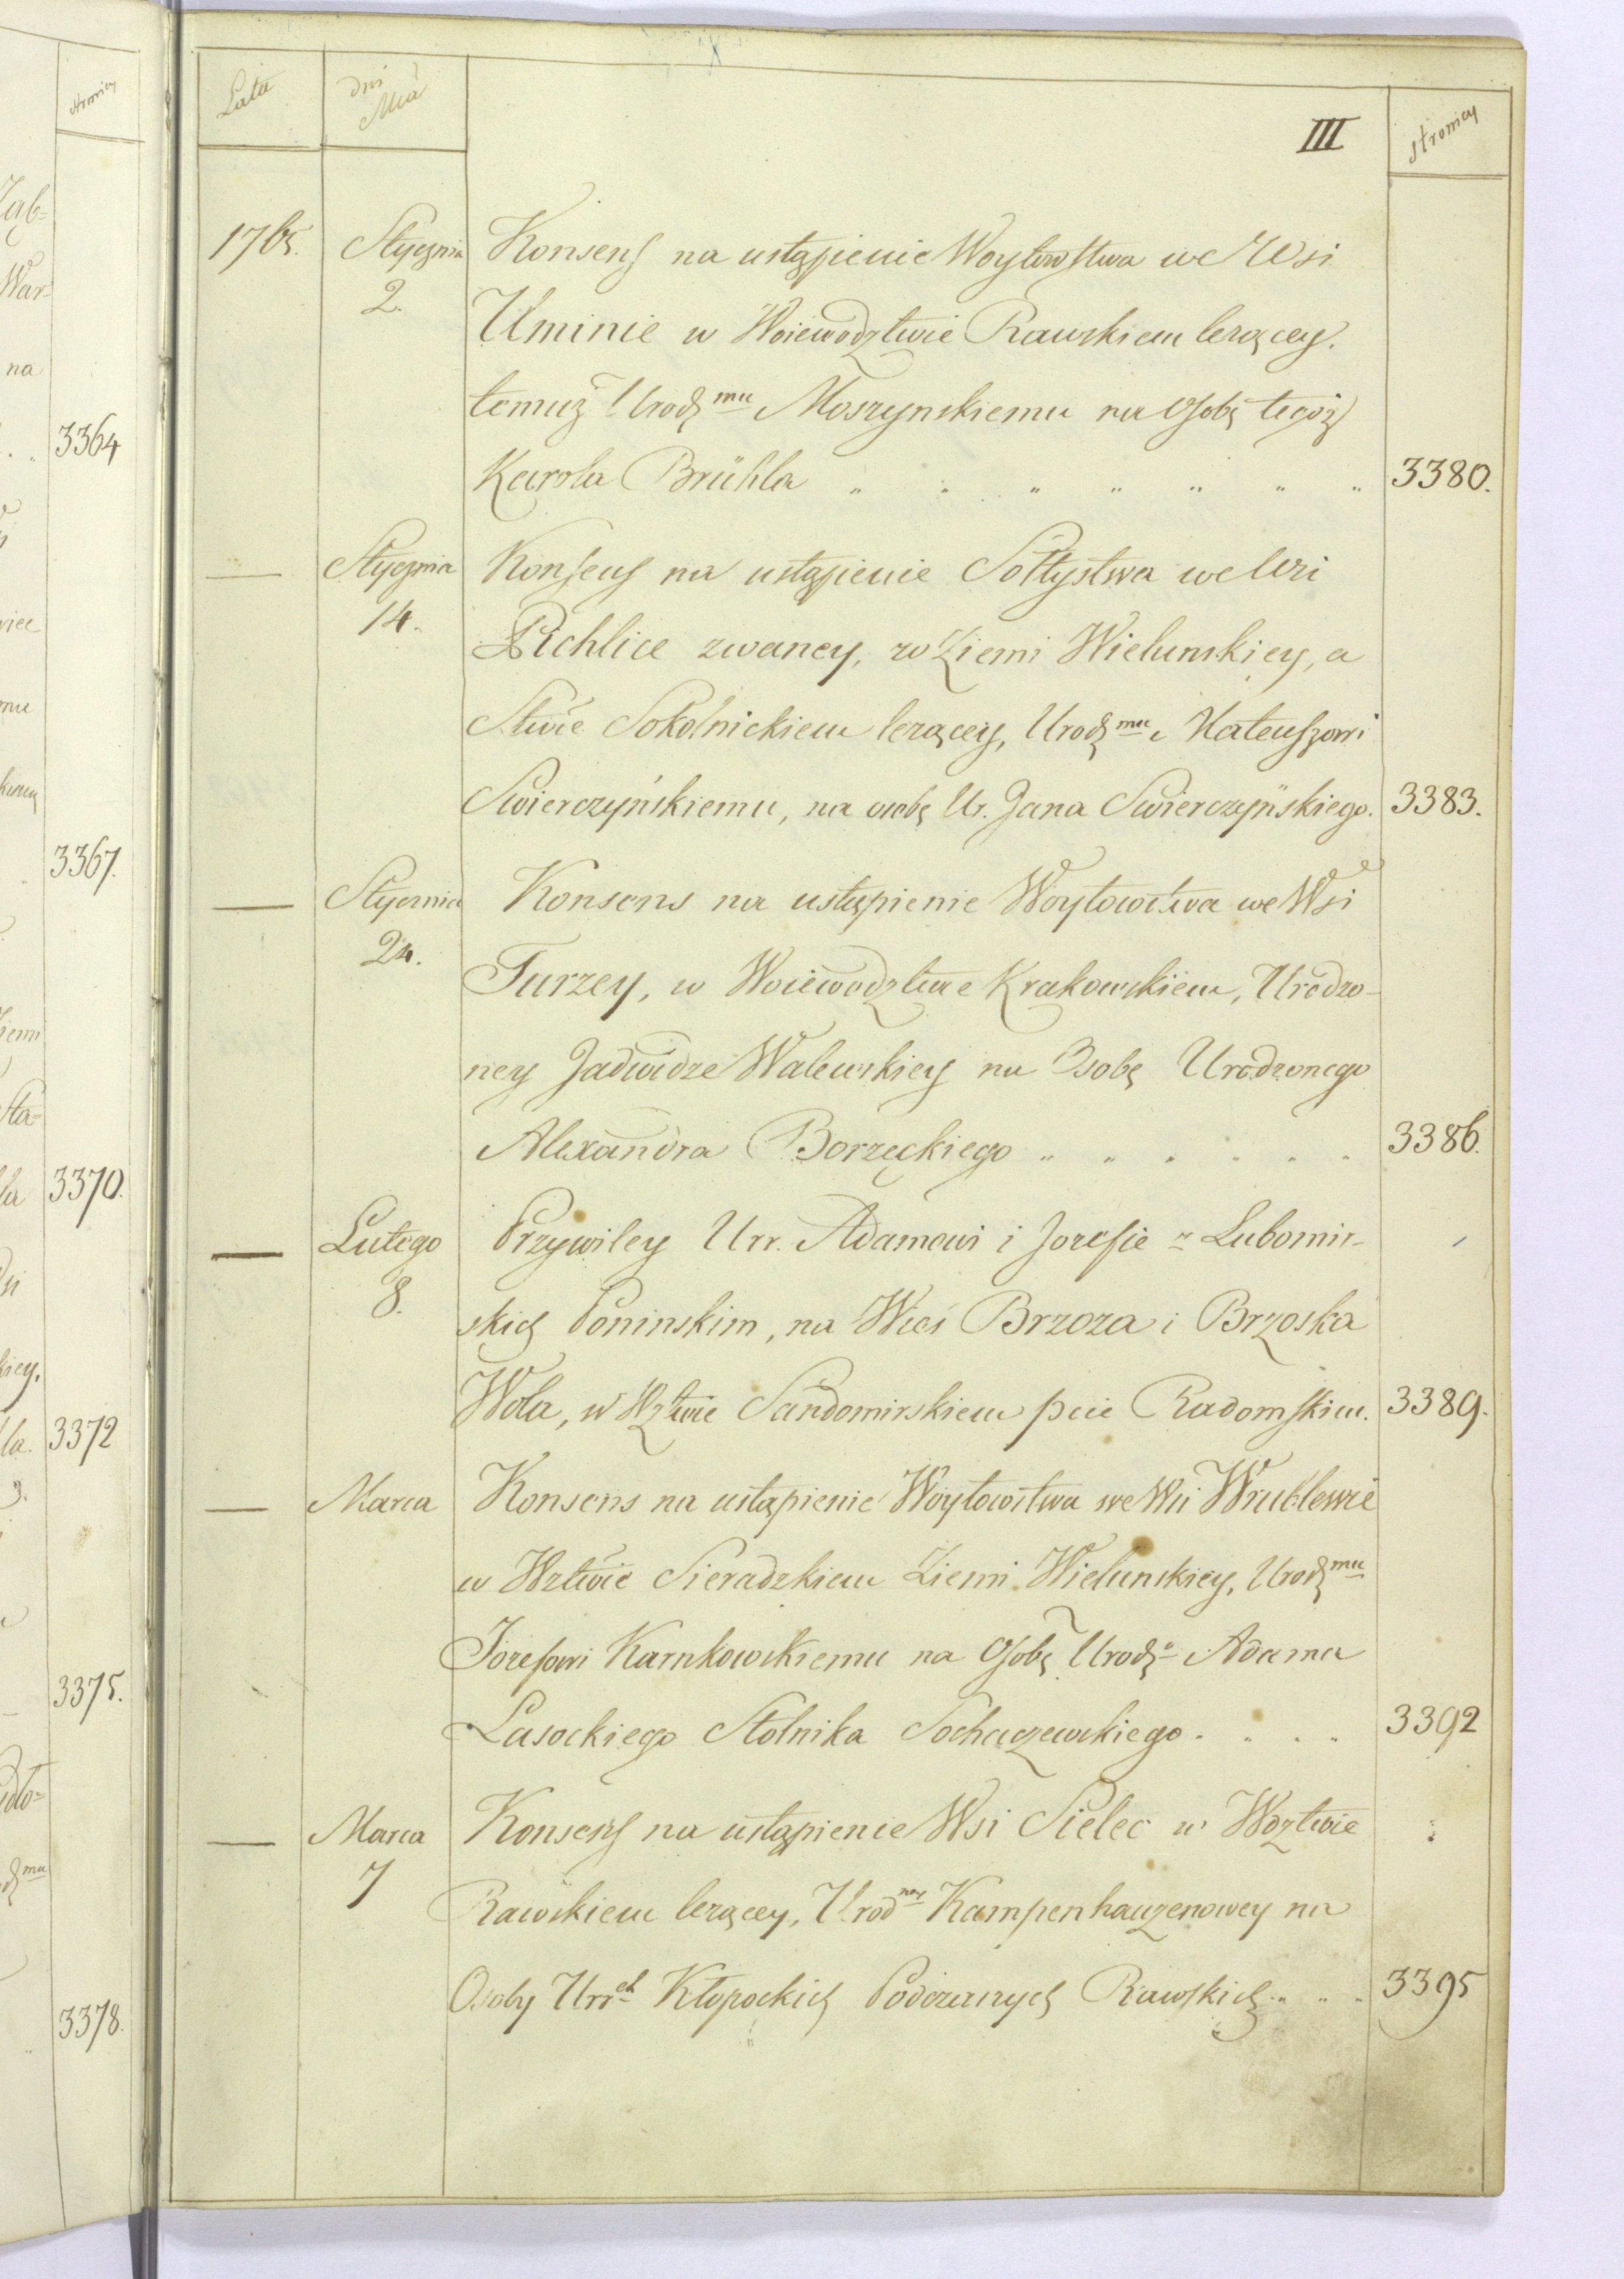 Lata
dni
Mca
III
stronicy
1765.
Stycznia
2.
Konsens na ustąpienie Woytowstwa we Wsi
Uminie w Woiewodztwie Rawskiem leżącey.
temuż Urodz mu Moszynskiemu na Osobę tegoż
Karola Brühla " " " " " " " 3380.
— Stycznia
14.
Konsens na ustąpienie Sołtystwa we Wsi
Pichlice zwaney, w Ziemi Wielunskiey, a
Stwie Sokolnickiem leżącey, Urodz mu Mateuszowi
Swierczyńskiemu, na osobę Ur. Jana Swierczyńskiego. 3383.
— Stycznia
24.
Konsens na ustąpienie Woytowstwa we Wsi
Turzey, w Woiewodztwie Krakowskiem, Urodzo-
ney Jadwidze Walewskiey na Osobę Urodzonego
Alexandra Borzęckiego " " " " " " 3386.
— Lutego
8.
Przywiley Urr. Adamowi i Jozefie z Lubomir-
skich Poninskim, na Wieś Brzoza i Brzoska
Wola, w Wztwie Sandomirskiem pcie Radomskim. 3389.
— Marca
Konsens na ustąpienie Woytowstwa we Wsi Wrublewie
w Wztwie Sieradzkiem Ziemi Wielunskiey, Urodz mu
Jozefowi Karnkowskiemu na Osobę Urodz o Adama
Lasockiego Stolnika Sochaczewskiego . . . . 3392
— Marca
7
Konsens na ustąpienie Wsi Sielec w Wdztwie
Rawskiem leżącey, Urod ney Kampenhauzenowey na
Osoby Urr ch Kłopockich Podczaszych Rawskich " " " 3395
stronicy
Ząb=
War=
na
3364
3367.
Ziemi
Sta=
la 3370.
kiey,
la. 3372
3375.
3378.